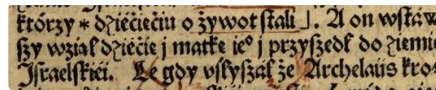 którzy * dziéćięćiu o żywot ſtali ⌋. A on wſtaw
ſzy wźiął dźiéćię j matkę ie⁰ j przyſzedł do źiemie
Jſraelſkiéi. Le gdy vſłyſzał że Archelaüs kro-